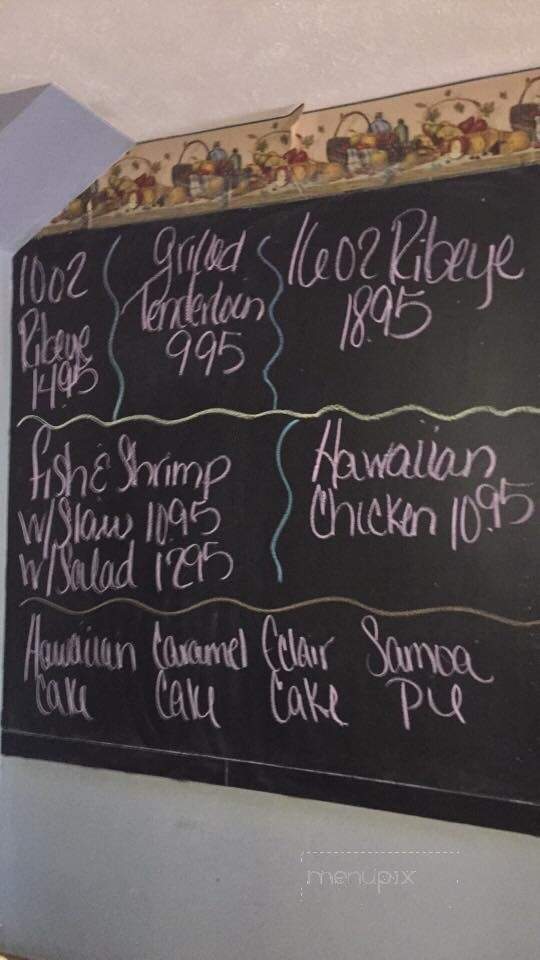 10oz
Ribeye
14.95
Grilled
Tenderloin
995
16oz Ribeye
18.95
Fish & Shrimp
w/Slaw 10.95
w/Salad 1295
Hawaiian
Chicken 10.95
Hawaiian
Cake
Caramel
Cake
Eclair
Cake
Samoa
Pie
menupix